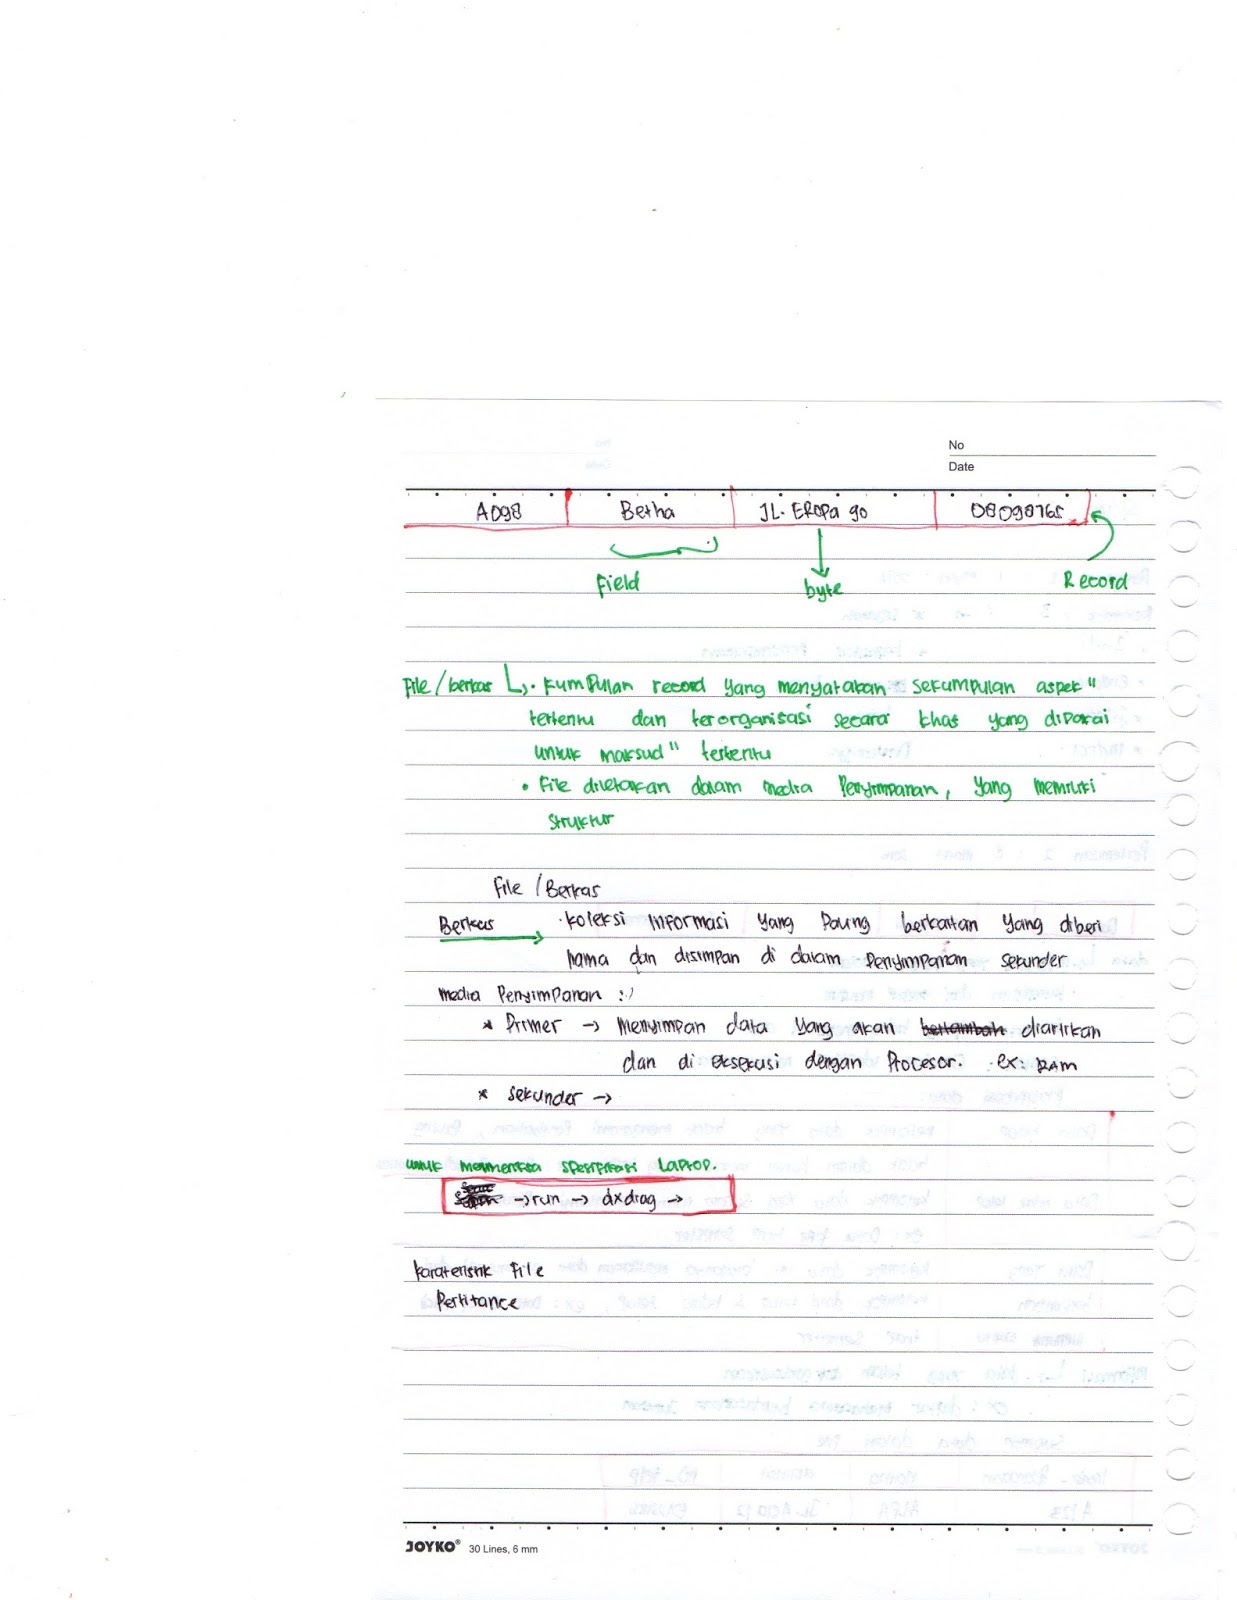 No
Date
A098 Betha JL. EROPa 90 08098765
Field byte Record
File / berkas ↳ • kumPulan record yang menyatakan sekumpulan aspek"
tertentu dan terorganisasi secara khas yang diPakai
untuk maksud" tertentu
• File diletakan dalam media Penyimpanan, yang memiliki
struktur
File / Berkas
Berkas → • koleksi informasi yang Paling berkaitan yang diberi
nama dan disimpan di dalam Penyimpanan sekunder
media PenyimPanan :
* Primer → menyimpan data yang akan bertambah dialirkan
dan di eksekusi dengan Procesor. ex: RAM
* sekunder →
untuk memeriksa spesifikasi Laptop.
→ run → dxdiag →
karateristik File
Pertitance
JOYKO® 30 Lines, 6 mm